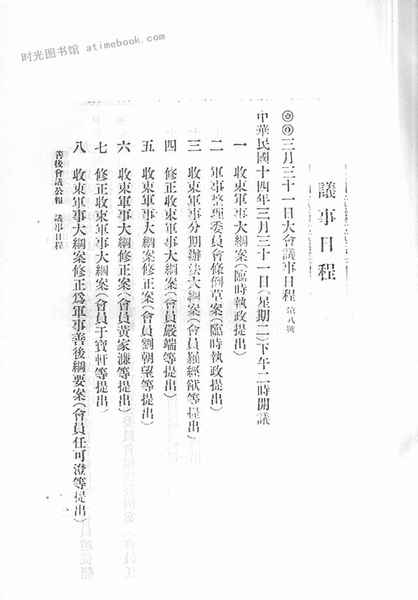 时光图书馆 atimebook.com
議事日程
◎◎三月三十一日大會議事日程 第八號
中華民國十四年三月三十一日(星期二)下午二時開議
一 收束軍事大綱案(臨時執政提出)
二 軍事整理委員會條例草案(臨時執政提出)
三 收束軍事分期辦法大綱案(會員 經猷等提出)
四 修正收束軍事大綱案(會員嚴端等提出)
五 收束軍事大綱案修正案(會員劉朝望等提出)
六 收束軍事大綱修正案(會員黃家濂等提出)
七 修正收束軍事大綱案(會員于寶軒等提出)
八 收束軍事大綱案修正爲軍事善後綱要案(會員任可澄等提出)
善後會議公報 議事日程